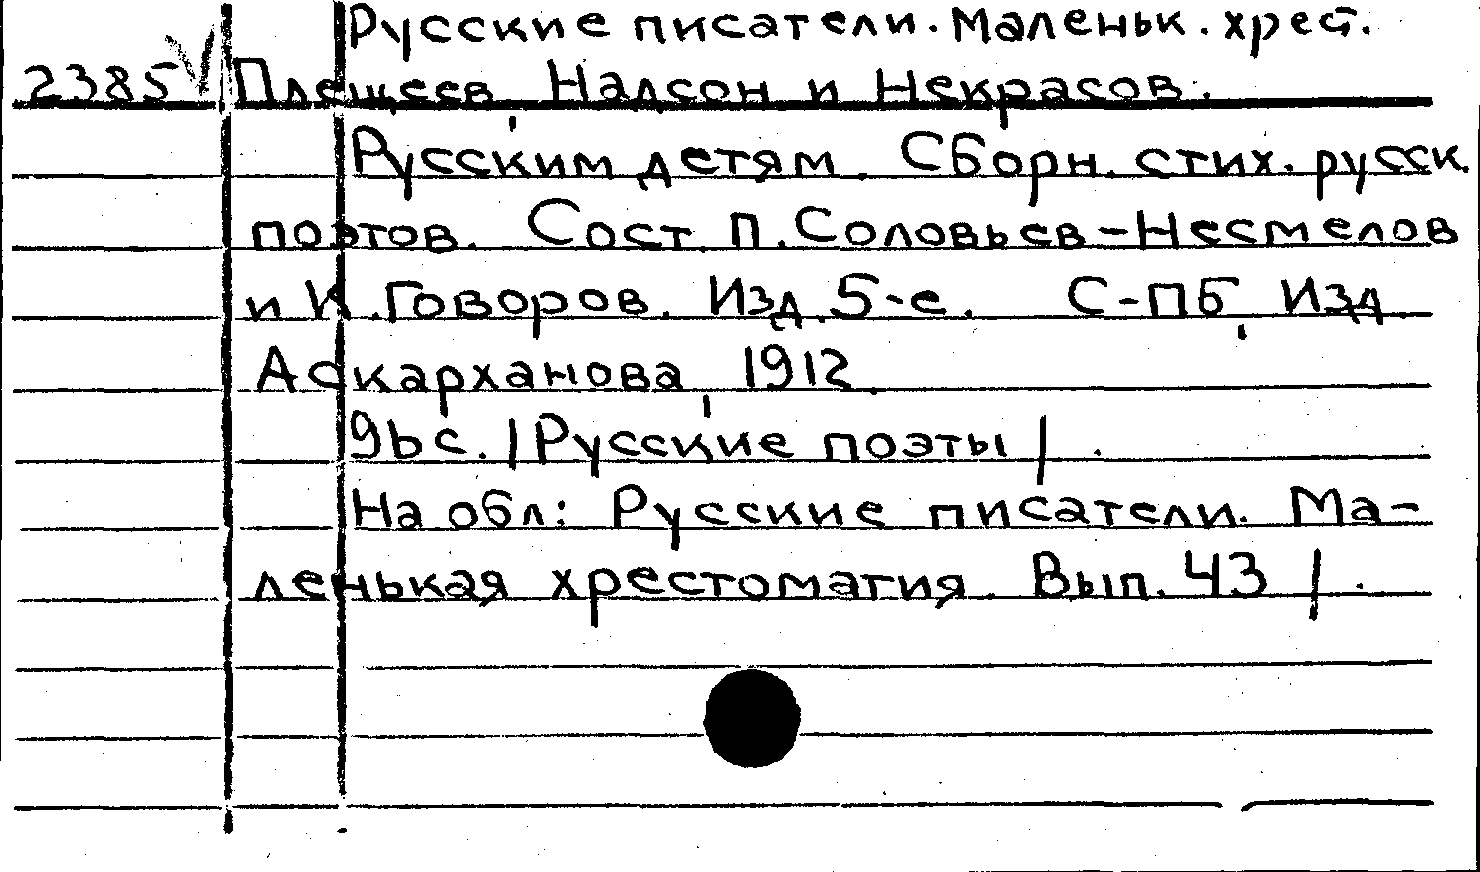 Русские писатели. Маленьк. хрест.
2385 Плещеев, Надсон и Некрасов.
Русским детям. Сборн. стих. русск.
поэтов. Сост. П. Соловьев-Несмелов
и К. Говоров. Изд. 5-е. С-Пб, Изд.
Аскарханова, 1912.
96 с. /Русские поэты/.
На обл: Русские писатели. Ма-
ленькая хрестоматия. Вып. 43/.